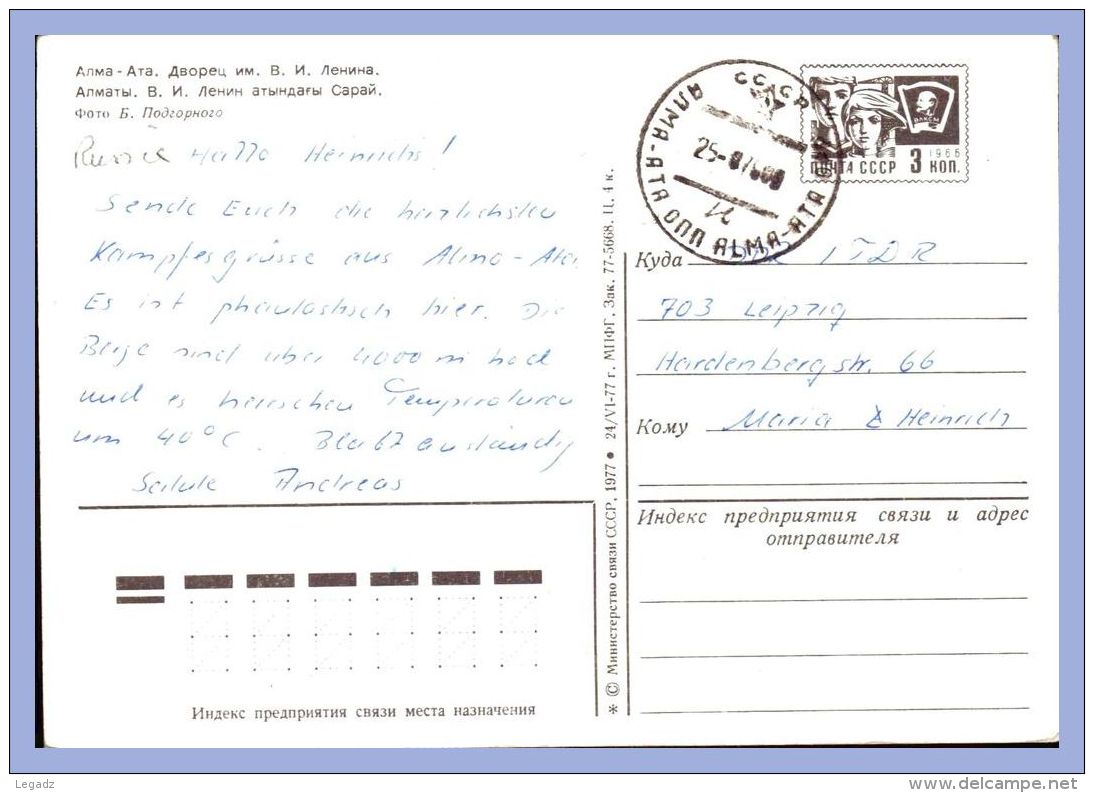 Алма-Ата. Дворец им. В. И. Ленина.
Алматы. В. И. Ленин атындағы Сарай.
Фото Б. Подгорного
Russie Hallo Heinrichs!
Sende Euch die herzlichsten
Kampfesgrüsse aus Alma-Ata.
Es ist phantastisch hier. Die
Berge sind über 4000 m hoch
und es herrschen Temperaturen
um 40°C. Bleibt anständig
Salute Andreas
Индекс предприятия связи места назначения
* © Министерство связи СССР, 1977 • 24/VI-77 г. МПФГ. Зак. 77-5668. Ц. 4 к.
СССР
АЛМА-АТА ОПП ALMA-ATA
25-
И
ВЛКСМ
1966
ПОЧТА СССР 3 КОП.
Куда DDR / ГДР
703 Leipzig
Hardenbergstr. 66
Кому Maria Heinrich
Индекс предприятия связи и адрес
отправителя
Legadz
www.delcampe.net